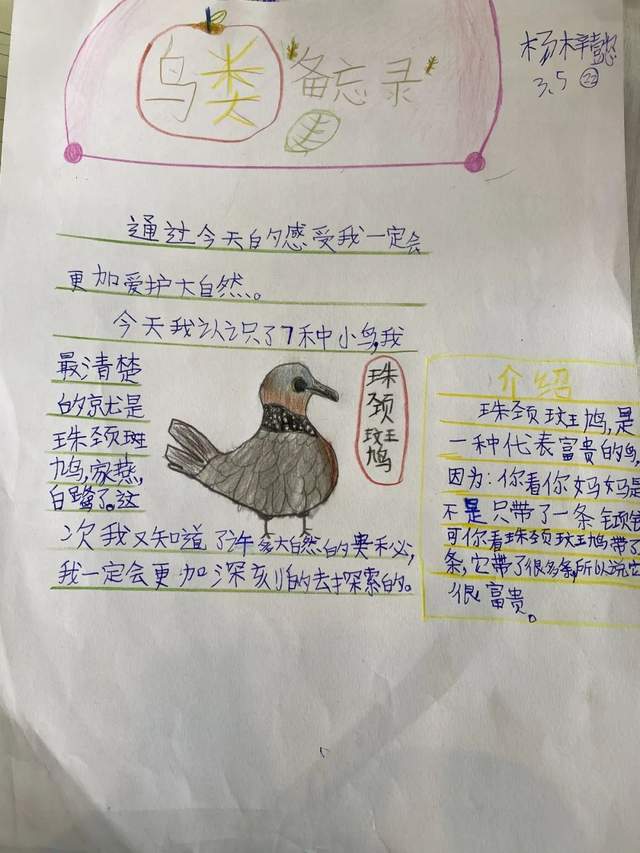 鸟类备忘录
杨梓懿
3.5 22
通过今天的感受我一定会
更加爱护大自然。
今天我认识了7种小鸟,我
最清楚
的就是
珠颈斑
鸠,家燕,
白鹭了。这
次我又知道了许多大自然的奥秘,
我一定会更加深刻的去探索的。
珠颈斑鸠
介绍
珠颈斑鸠,是
一种代表富贵的鸟,
因为:你看你妈妈是
不是只带了一条项链
可你看珠颈斑鸠带了
条,它带了很多条,所以说它
很富贵。